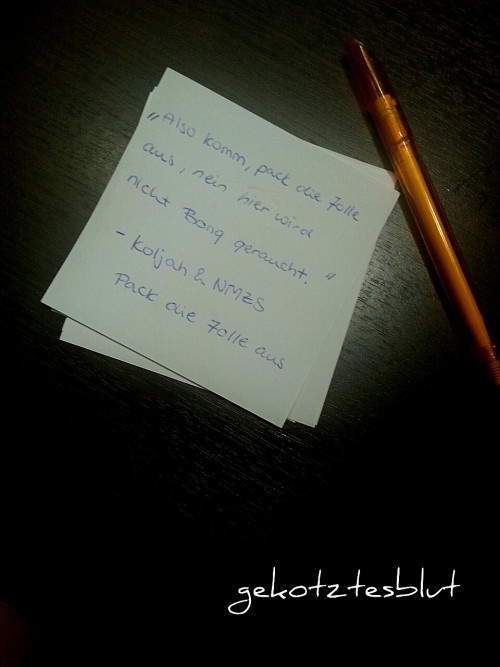 „Also komm, pack die Zolle
aus, nein hier wird
nicht Bong geraucht."
- Koljah & NMZS
Pack die Zolle aus
gekotztesblut